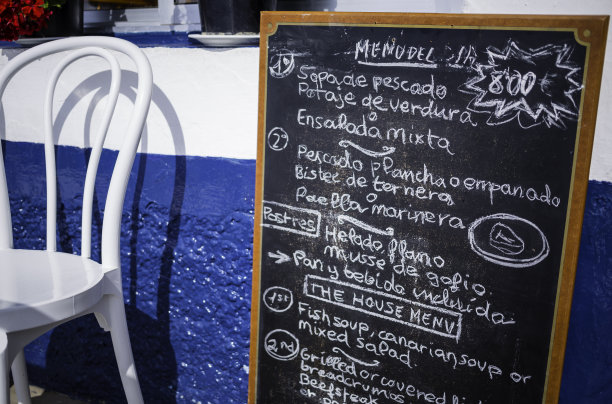 MENU DEL DIA
8'00
1º
Sopa de pescado
Potaje de verdura
o
Ensalada mixta
2º
Pescado Plancha o empanado
Bistec de ternera
o
Paella marinera
Postres
Helado, flano
musse de gofio
→ Pan y bebida incluida
THE HOUSE MENU
1st
Fish soup, canarian soup or
mixed salad.
2nd
Grilled or covered
breadcrumbs
Beefsteak
or